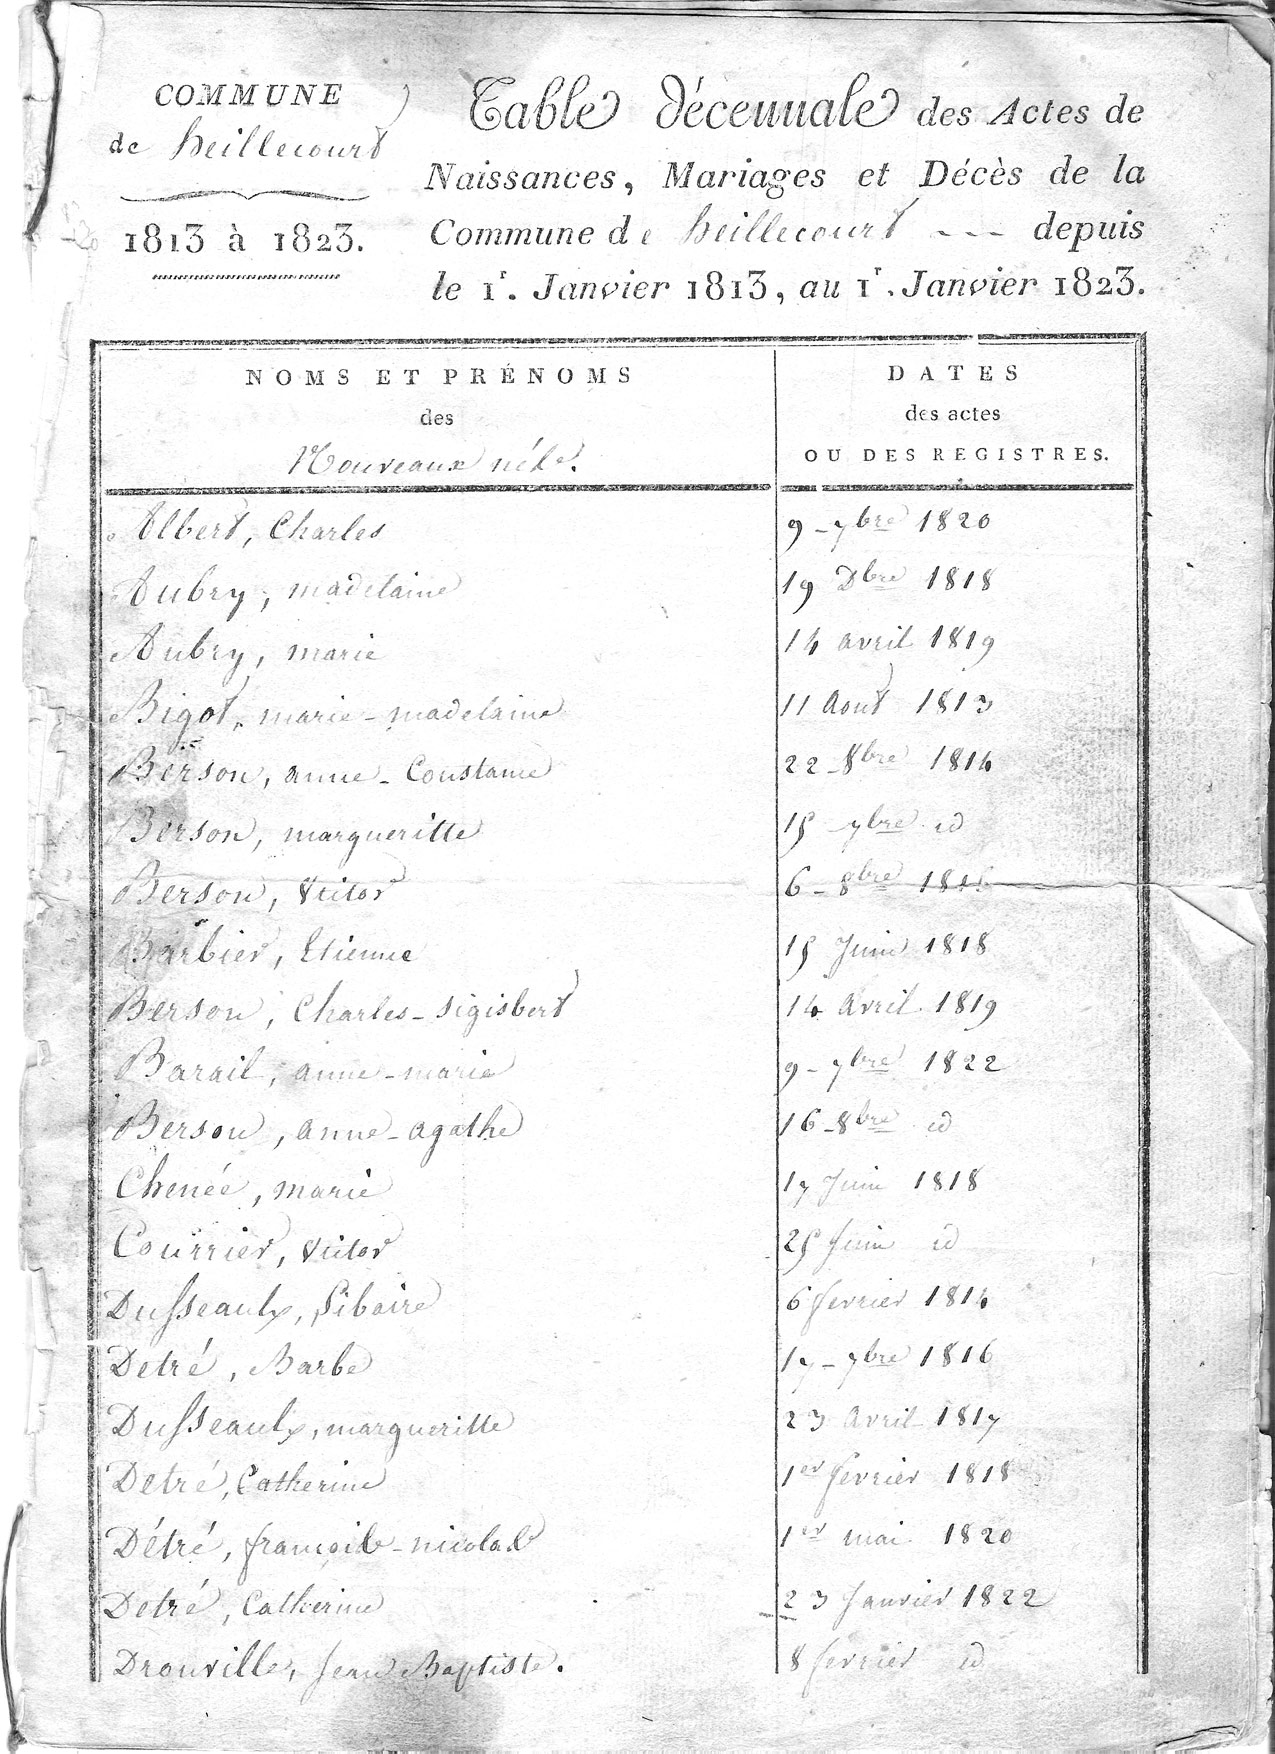 COMMUNE
de heillecourt
1813 à 1823.
Table décennale des Actes de
Naissances, Mariages et Décès de la
Commune de heillecourt --- depuis
le 1r. Janvier 1813, au 1r. Janvier 1823.
NOMS ET PRÉNOMS
des
Nouveaux nés.
DATES
des actes
OU DES REGISTRES.
Albert, Charles 9-7bre 1820
Aubry, madelaine 19 Dbre 1818
Aubry, marie 14 avril 1819
Bigot, marie-madelaine 11 Aout 1813
Berson, anne-Constance 22-8bre 1814
Berson, margueritte 15-7bre id
Berson, Victor 6-8bre 1816
Barbier, Etienne 15 Juin 1818
Berson, Charles-Sigisbert 14 Avril 1819
Barail, anne-marie 9-7bre 1822
Berson, anne-agathe 16-8bre id
Chenée, marie 17 Juin 1818
Courrier, Victor 25 Juin id
Dusseaulx, Libaire 6 fevrier 1814
Detré, Barbe 17-7bre 1816
Dusseaulx, margueritte 23 Avril 1817
Detré, Catherine 1er fevrier 1818
Détré, françois-nicolas 1er mai 1820
Detré, Catherine 23 Janvier 1822
Drouville, Jean Baptiste. 8 fevrier id